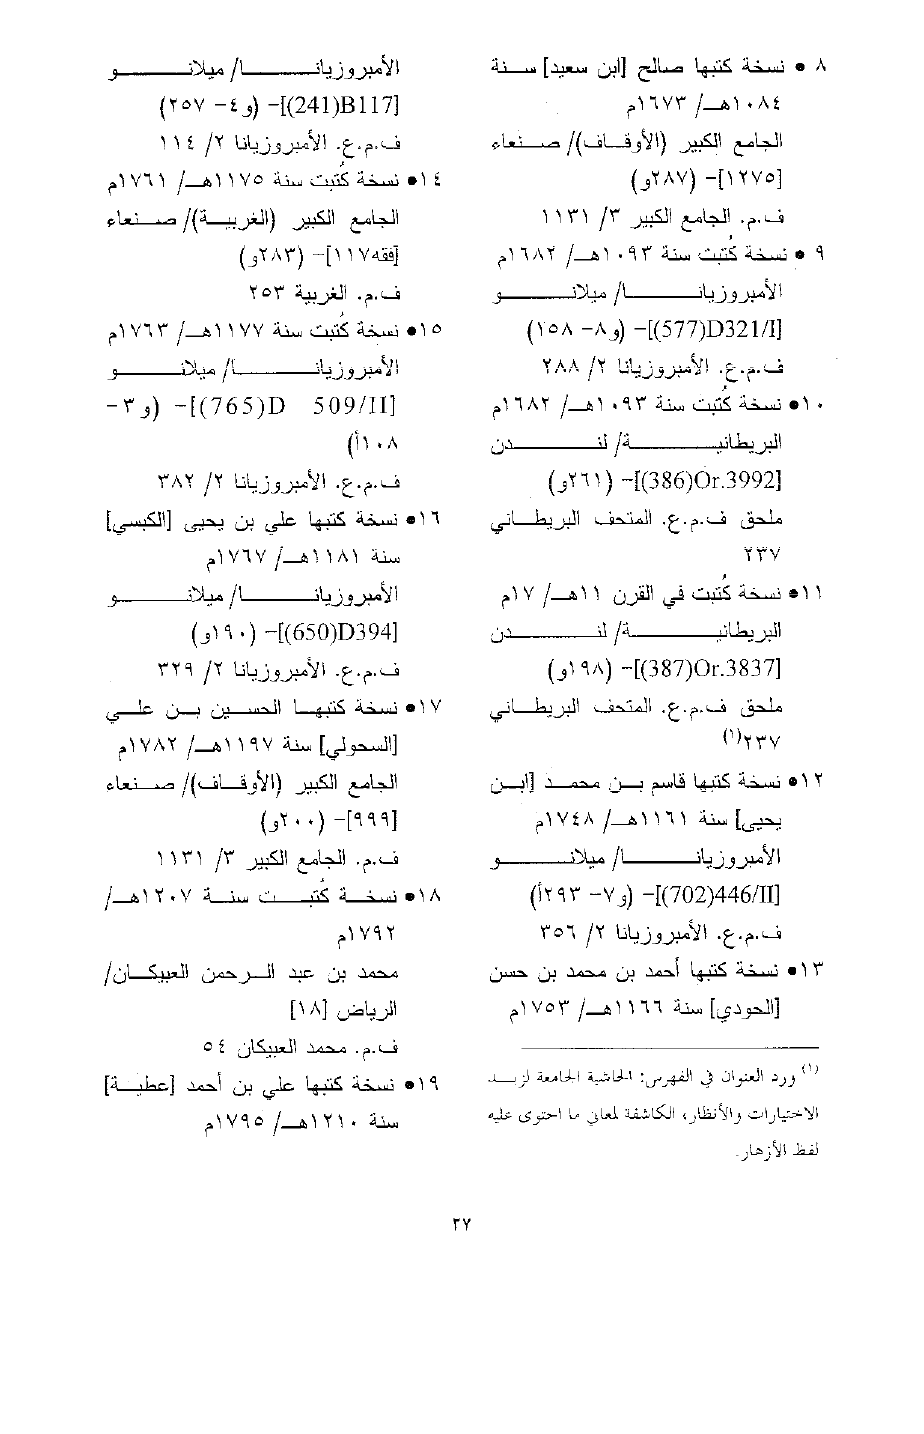 ٨ • نسخة كتبها صالح [ابن سعيد] سنة
١٠٨٤هـ/ ١٦٧٣م
الجامع الكبير (الأوقاف)/ صنعاء
[١٢٧٥]- (٢٨٧و)
ف.م. الجامع الكبير ٣/ ١١٣١
٩ • نسخة كُتبت سنة ١٠٩٣هـ/ ١٦٨٢م
الأمبروزيانا/ ميلانو
[D321/I(577)]- (و٨- ١٥٨)
ف.م.ع. الأمبروزيانا ٢/ ٢٨٨
١٠• نسخة كُتبت سنة ١٠٩٣هـ/ ١٦٨٢م
البريطانية/ لندن
[Or.3992(386)]- (٢٦١و)
ملحق ف.م.ع. المتحف البريطاني
٢٣٧
١١• نسخة كُتبت في القرن ١١هـ/ ١٧م
البريطانية/ لندن
[Or.3837(387)]- (١٩٨و)
ملحق ف.م.ع. المتحف البريطاني
٢٣٧(١)
١٢• نسخة كتبها قاسم بن محمد [ابن
يحيى] سنة ١١٦١هـ/ ١٧٤٨م
الأمبروزيانا/ ميلانو
[446/II(702)]- (و٧- ٢٩٣أ)
ف.م.ع. الأمبروزيانا ٢/ ٣٥٦
١٣• نسخة كتبها أحمد بن محمد بن حسن
[الحودي] سنة ١١٦٦هـ/ ١٧٥٣م
(١) ورد العنوان في الفهرس: الحاشية الجامعة لزبد
الاختيارات والأنظار، الكاشفة لمعاني ما احتوى عليه
لفظ الأزهار.
الأمبروزيانا/ ميلانو
[B117(241)]- (و٤- ٢٥٧)
ف.م.ع. الأمبروزيانا ٢/ ١١٤
١٤• نسخة كُتبت سنة ١١٧٥هـ/ ١٧٦١م
الجامع الكبير (الغربية)/ صنعاء
[فقه١١٧]- (٢٨٣و)
ف.م. الغربية ٢٥٣
١٥• نسخة كُتبت سنة ١١٧٧هـ/ ١٧٦٣م
الأمبروزيانا/ ميلانو
[D 509/II(765)]- (و٣-
١٠٨أ)
ف.م.ع. الأمبروزيانا ٢/ ٣٨٢
١٦• نسخة كتبها علي بن يحيى [الكبسي]
سنة ١١٨١هـ/ ١٧٦٧م
الأمبروزيانا/ ميلانو
[D394(650)]- (١٩٠و)
ف.م.ع. الأمبروزيانا ٢/ ٣٢٩
١٧• نسخة كتبها الحسين بن علي
[السحولي] سنة ١١٩٧هـ/ ١٧٨٢م
الجامع الكبير (الأوقاف)/ صنعاء
[٩٩٩]- (٢٠٠و)
ف.م. الجامع الكبير ٣/ ١١٣١
١٨• نسخة كُتبت سنة ١٢٠٧هـ/
١٧٩٢م
محمد بن عبد الرحمن العبيكان/
الرياض [١٨]
ف.م. محمد العبيكان ٥٤
١٩• نسخة كتبها علي بن أحمد [عطية]
سنة ١٢١٠هـ/ ١٧٩٥م
٢٧